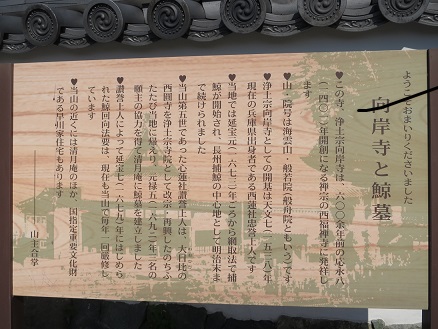 ようこそおまいりくださいました
向岸寺と鯨墓
♥この寺、浄土宗向岸寺は、六〇〇余年前の応永八
(一四〇一)年開創になる禅宗の西福禅寺に発祥し
ます
♥山・院号は海雲山・般若院(般舟院ともいう)です
♥浄土宗向岸寺としての開基は天文七(一五三八)年
現在の兵庫県出身者である西蓮社忠誉上人です
♥当地では延宝元(一六七三)年ころから網取法で捕
鯨が開始され、長州捕鯨の中心地として明治末ま
で続けられました
♥当山第五世であった心蓮社讃誉上人は、大日比の
西圓寺を浄土宗寺院として改宗・再興したのちふ
たたび当地に帰山し、元禄五(一六九二)年三名の
願主の協力を得て清月庵に鯨墓を建立しました
♥讃誉上人によって延宝七(一六七九)年にはじめら
れた鯨回向法要は、現在も当山で毎年一回厳修し
ています
♥当山の近くには清月庵のほか、国指定重要文化財
である早川家住宅もあります
山主合掌